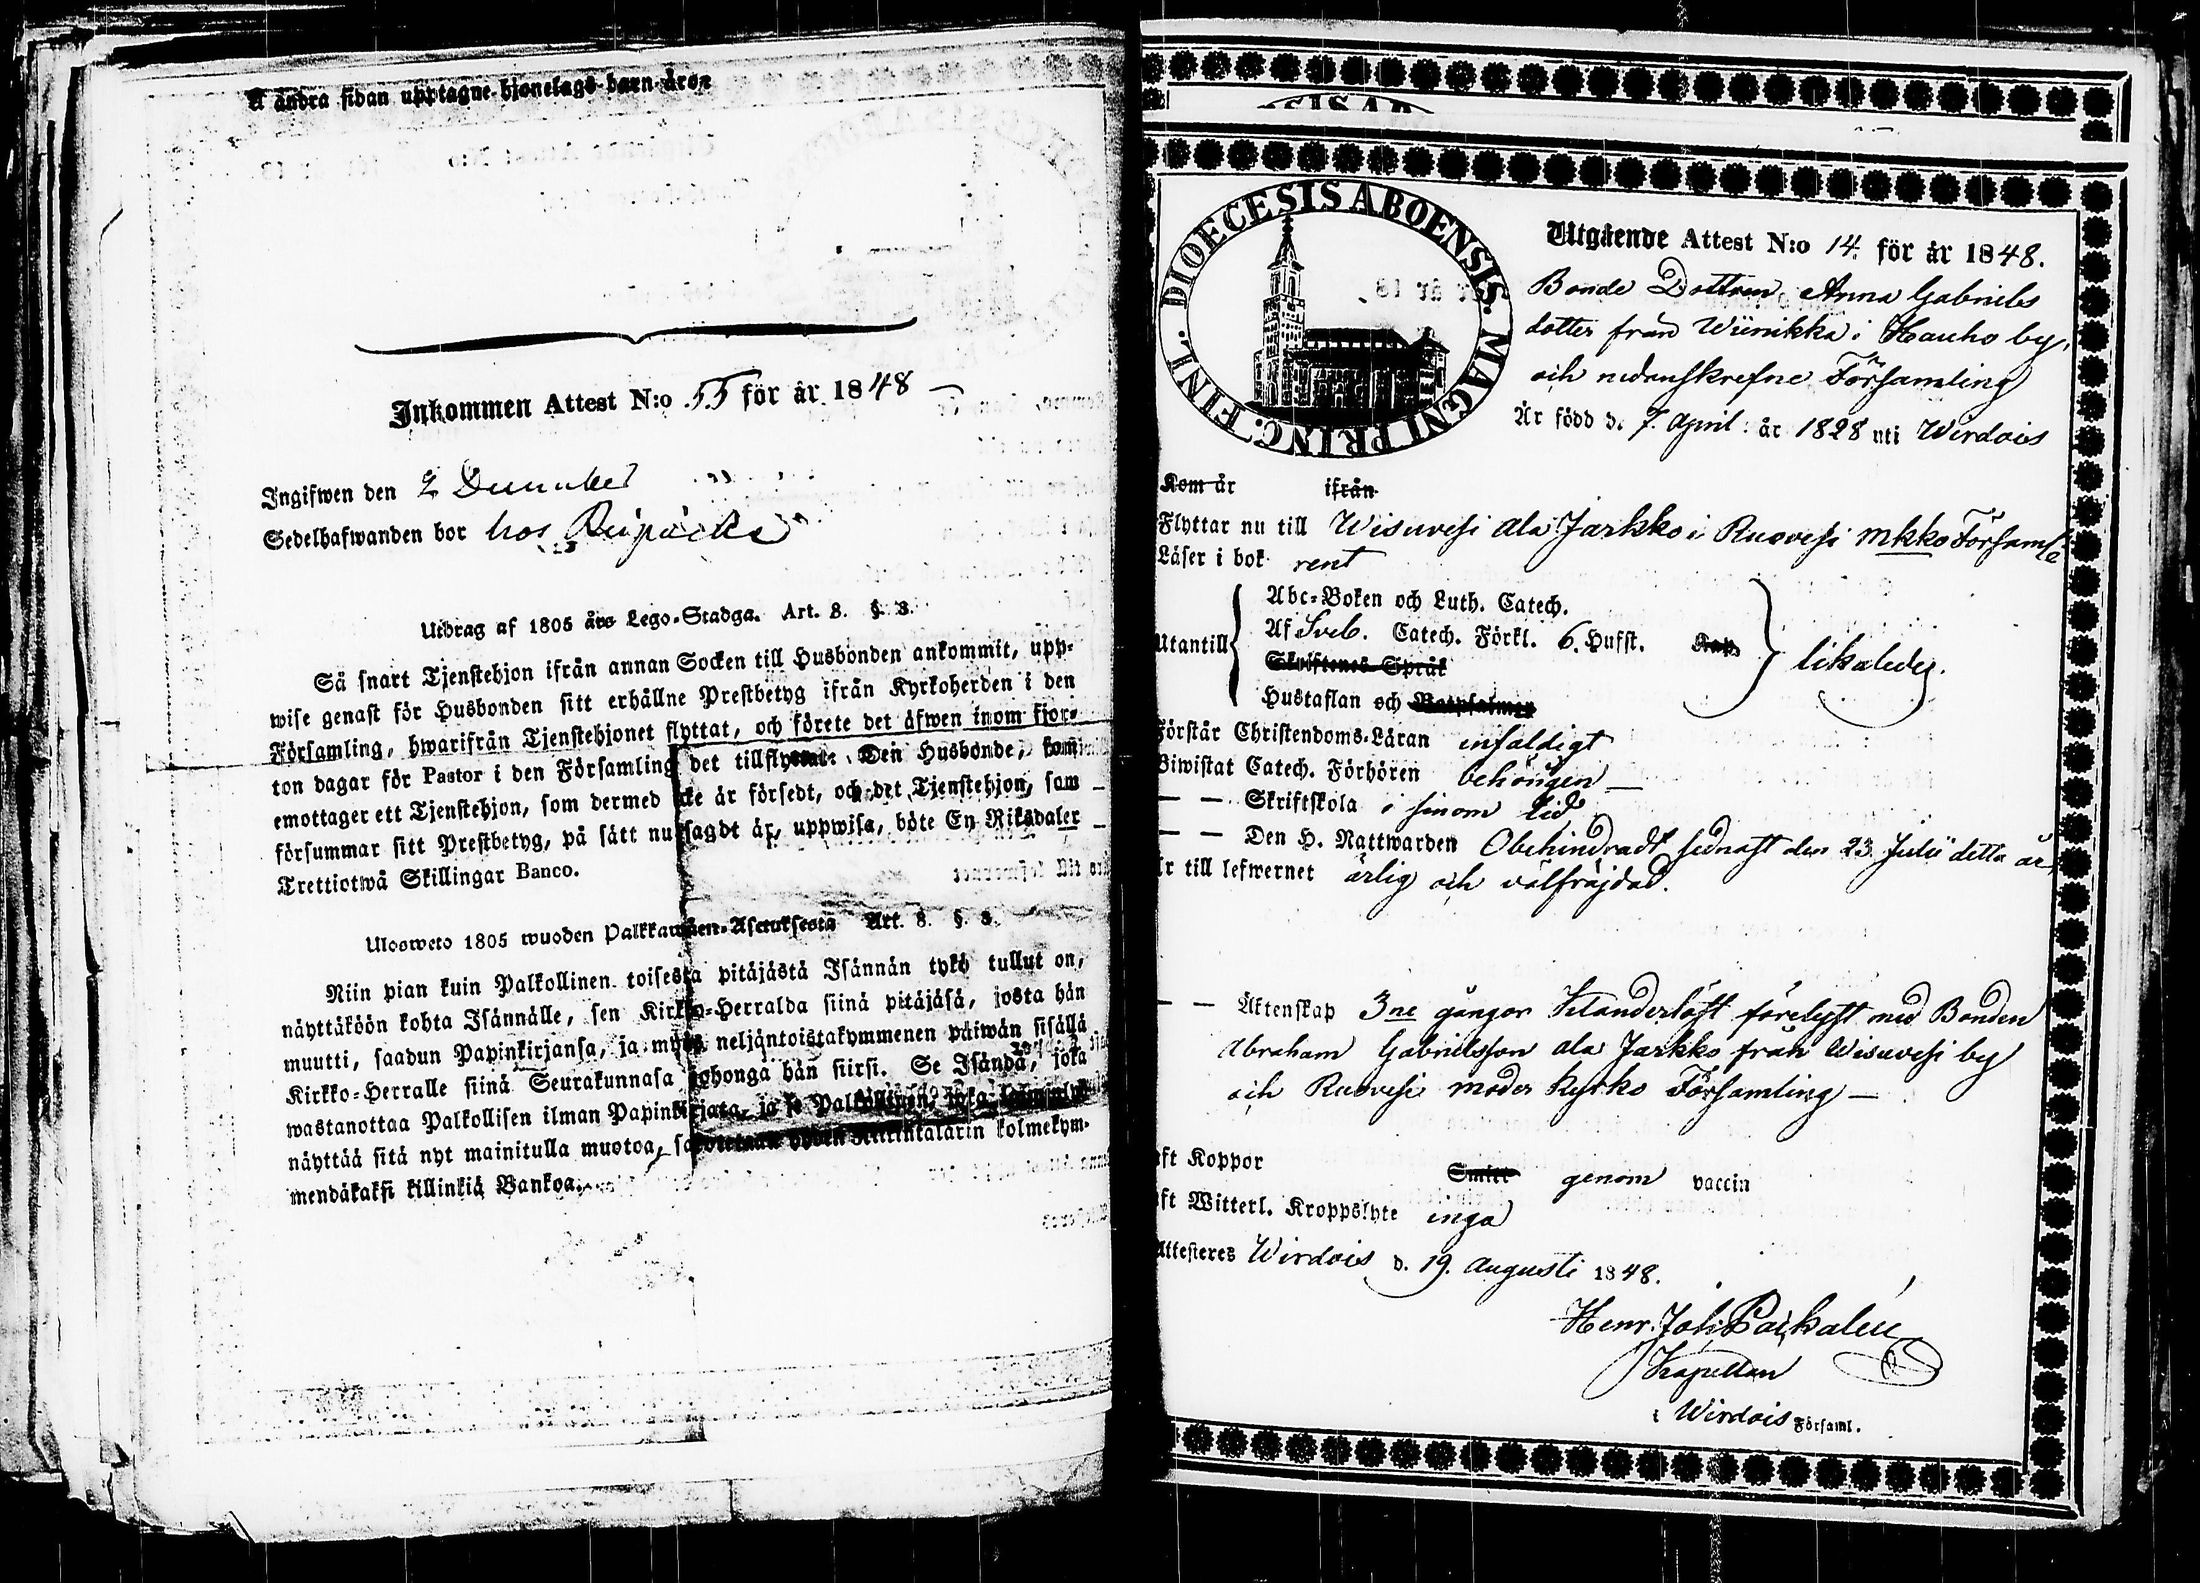 å andra sidan upptagne hjonelags barn äro:
Inkommen Attest N:o 55 för år 1848
Ingifwen den 2 December
Sedelhafwanden bor hos
Utdrag af 1805 års Lego-Stadga. Art. 8. §. 3.
Så snart Tjenstehjon ifrån annan Socken till Husbonden ankommit, upp-
wise genast för Husbonden sitt erhållne Prestbetyg ifrån Kyrkoherden i den
Församling, hwarifrån Tjenstehjonet flyttat, och förete det äfwen inom fjor-
ton dagar för Pastor i den Församling det tillflyttat. Den Husbonde, som
emottager ett Tjenstehjon, som dermed icke är försedt, och det Tjenstehjon, som
försummar sitt Prestbetyg, på sätt nu sagdt är, uppwisa, böte En Riksdaler
Trettiotwå Skillingar Banco.
Ulosweto 1805 wuoden Palkkawäen-Asetuksesta Art. 8. §. 3.
Niin pian kuin Palkollinen toisesta pitäjästä Isännän tykö tullut on,
näyttäköön kohta Isännälle, sen Kirkko-Herralda siinä pitäjäsä, josta hän
muutti, saadun Papinkirjansa, ja myös neljäntoistakymmenen päiwän sisällä
Kirkko-Herralle siinä Seurakunnasa johonga hän siirsi. Se Isändä, joka
wastanottaa Palkollisen ilman Papinkirjata, ja se Palkollinen, joka
näyttää sitä nyt mainitulla muotoa, kolmekym-
mendäkaksi killinkiä Bankoa.
DIOECESIS ABOENSIS. MAGNI PRINC. FINL.
Utgående Attest N:o 14. för år 1848.
Bonde Dottren Anna Gabriels
dotter från Wiinikka i Hauho by,
och nedanskrefne Församling
Är född d. 7. April. år 1828 uti Wirdois
Kom år ifrån
Flyttar nu till Wisuvesi ala Jarkko i Ruovesi mkko Församl
Läser i bok rent
Abc-Boken och Luth. Catech.
Af Sveb. Catech. Förkl. 6. Hufst. Kap.
Utantill Skriftenes Språk likaledes.
Hustaflan och Botpsalmer
Förstår Christendoms-Läran enfaldigt
Biwistat Catech. Förhören behörigen
— — Skriftskola i sinom tid
— — Den H. Nattwarden Obehindradt sednast den 23 Julii detta år,
är till lefwernet ärlig och välfräjdad.
— — Äktenskap 3ne gångor Klanderlöst förelyst med Bonden
Abraham Gabrielsson ala Jarkko från Wisuvesi by
och Ruovesi moder kyrko Församling —
aft Koppor Smitt genom vaccin
aft Witterl. Kroppslyte inga
Attesteres Wirdois d. 19. Augusti 1848.
Henr. Joh.
Kapellan
i Wirdois Församl.